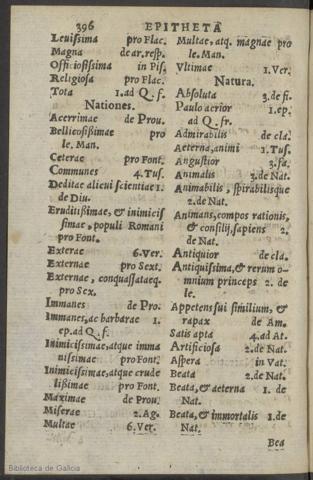 396 EPITHETA
Leuissima pro Flac.
Magna de ar. resp.
Officiosissima in Pis.
Religiosa pro Flac.
Tota 1. ad Q. f.
Nationes.
Acerrimae de Prou.
Bellicosißimae pro
le. Man.
Ceterae pro Font.
Communes 4. Tus.
Deditae alicui scientiae 1.
de Diu.
Eruditißimae, & inimicis
simae, populi Romani
pro Font.
Exterae 6. Ver.
Externae pro Sext.
Externae, conquassataeq.
pro Sex.
Immanes de Pro.
Immanes, ac barbarae 1.
ep. ad Q. f.
Inimicissimae, atque imma
nissimae pro Font.
Inimicissimae, atque crude
lißimae pro Font.
Maximae de Prou.
Miserae 2. Ag.
Multae 6. Ver.
Multae, atq. magnae pro
le. Man.
Vltimae 1. Ver.
Natura.
Absoluta 3. de fi.
Paulo acrior 1. ep.
ad Q. fr.
Admirabilis de cla.
Aeterna, animi 1. Tus.
Angustior 3. fa.
Animalis 3. de Nat.
Animabilis, spirabilisque
2. de Nat.
Animans, compos rationis,
& consilij, sapiens 2.
de Nat.
Antiquior de cla.
Antiquissima, & rerum o-
mnium princeps 2. de
le.
Appetens sui similium, &
rapax de Am.
Satis apta 4. ad At.
Artificiosa 2. de Nat.
Aspera in Vat.
Beata 2. de Nat.
Beata, & aeterna 1. de
Nat.
Beata, & immortalis 1. de
Nat.
Bea
Biblioteca de Galicia